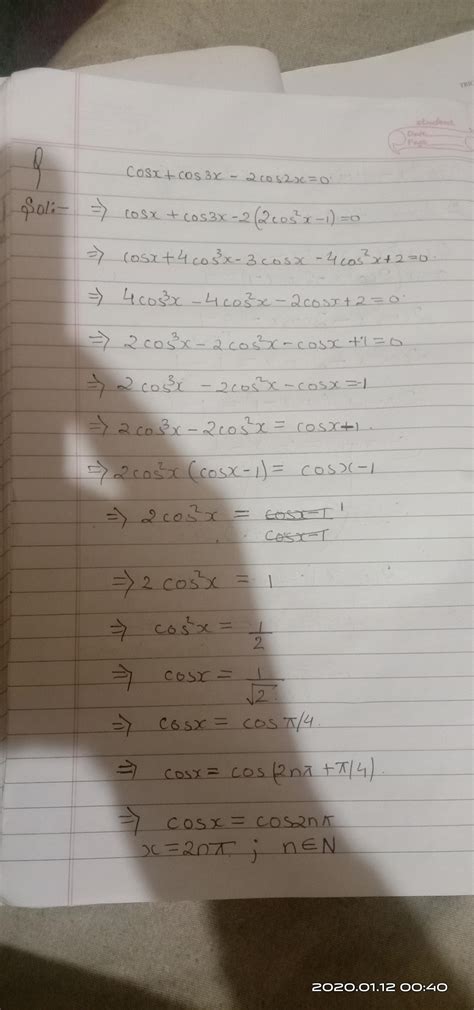 student
Date
Page
Q
cosx + cos3x - 2cos2x = 0
Soln:- ⇒ cosx + cos3x - 2(2cos²x - 1) = 0
⇒ cosx + 4cos³x - 3cosx - 4cos²x + 2 = 0
⇒ 4cos³x - 4cos²x - 2cosx + 2 = 0
⇒ 2cos³x - 2cos²x - cosx + 1 = 0
⇒ 2cos³x - 2cos²x - cosx = -1
⇒ 2cos³x - 2cos²x = cosx - 1
⇒ 2cos²x (cosx - 1) = cosx - 1
⇒ 2cos²x = cosx-1 / cosx-1 1
⇒ 2cos²x = 1
⇒ cos²x = 1/2
⇒ cosx = 1/√2
⇒ cosx = cos π/4.
⇒ cosx = cos(2nπ + π/4).
⇒ cosx = cos2nπ
x = 2nπ ; n∈N
2020.01.12 00:40